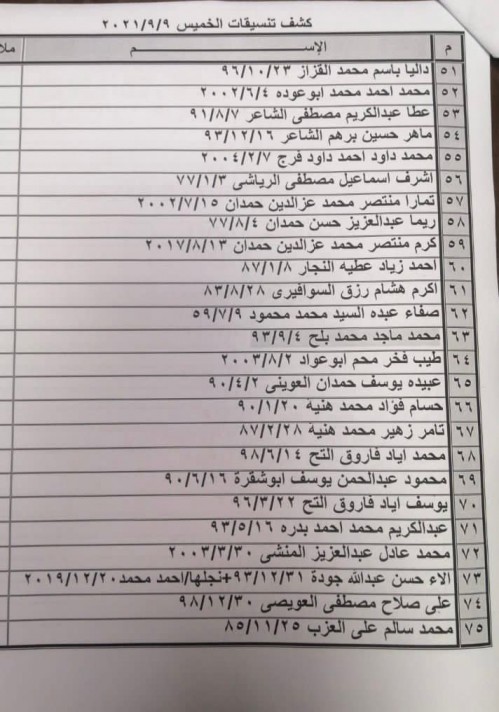 كشف تنسيقات الخميس ٢٠٢١/٩/٩
م الإســـــم ملا
٥١ داليا باسم محمد القزاز ٩٦/١٠/٢٣
٥٢ محمد احمد محمد ابوعوده ٢٠٠٢/٦/٤
٥٣ عطا عبدالكريم مصطفى الشاعر ٩١/٨/٧
٥٤ ماهر حسين برهم الشاعر ٩٣/١٢/١٦
٥٥ محمد داود احمد داود فرج ٢٠٠٤/٢/٧
٥٦ اشرف اسماعيل مصطفى الرياشى ٧٧/١/٣
٥٧ تمارا منتصر محمد عزالدين حمدان ٢٠٠٢/٧/١٥
٥٨ ريما عبدالعزيز حسن حمدان ٧٧/٨/٤
٥٩ كرم منتصر محمد عزالدين حمدان ٢٠١٧/٨/١٣
٦٠ احمد زياد عطيه النجار ٨٧/١/٨
٦١ اكرم هشام رزق السوافيرى ٨٣/٨/٢٨
٦٢ صفاء عبده السيد محمد محمود ٥٩/٧/٩
٦٣ محمد ماجد محمد بلح ٩٣/٩/٤
٦٤ طيب فخر محم ابوعواد ٢٠٠٣/٨/٢
٦٥ عبيده يوسف حمدان العوينى ٩٠/٤/٢
٦٦ حسام فؤاد محمد هنية ٩٠/١/٢٠
٦٧ تامر زهير محمد هنية ٨٧/٢/٢٨
٦٨ محمد اياد فاروق التح ٩٨/٦/١٤
٦٩ محمود عبدالحمن يوسف ابوشقرة ٩٠/٦/١٦
٧٠ يوسف اياد فاروق التح ٩٦/٣/٢٢
٧١ عبدالكريم محمد احمد بدره ٩٣/٥/١٦
٧٢ محمد عادل عبدالعزيز المنشى ٢٠٠٣/٣/٣٠
٧٣ الاء حسن عبدالله جودة ٩٣/١٢/٣١+نجلها/احمد محمد٢٠١٩/١٢/٢٠
٧٤ على صلاح مصطفى العويصى ٩٨/١٢/٣٠
٧٥ محمد سالم على العزب ٨٥/١١/٢٥